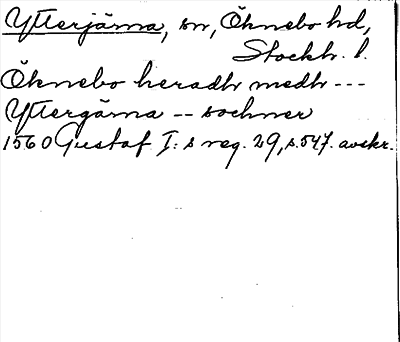 Ytterjärna, sn, Öknebo hd,
Stockh. l.
Öknebo heradh medh ---
Yttergärna -- sochner
1560 Gustaf I:s reg. 29, s. 547. avskr.